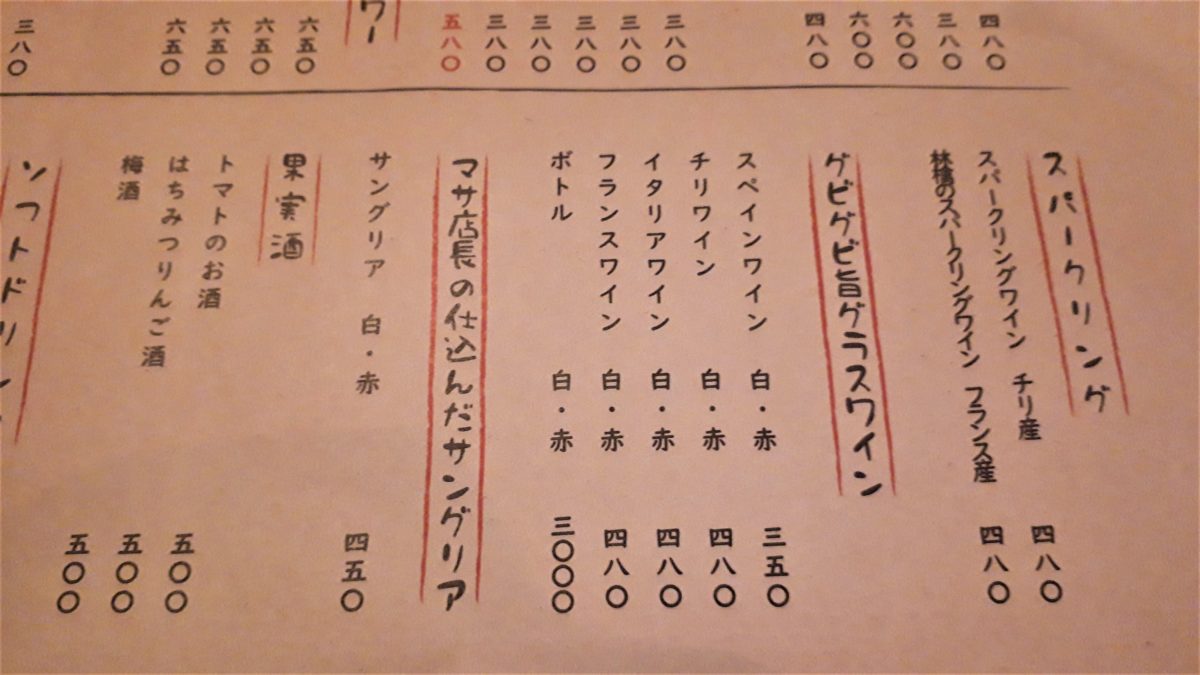 四八〇
三八〇
六〇〇
六〇〇
四八〇
三八〇
三八〇
三八〇
三八〇
三八〇
五八〇
ワー
六五〇
六五〇
六五〇
六五〇
三八〇
スパークリング
スパークリングワイン チリ産 四八〇
林檎のスパークリングワイン フランス産 四八〇
グビグビ旨グラスワイン
スペインワイン 白・赤 三五〇
チリワイン 白・赤 四八〇
イタリアワイン 白・赤 四八〇
フランスワイン 白・赤 四八〇
ボトル 白・赤 三〇〇〇
マサ店長の仕込んだサングリア
サングリア 白・赤 四五〇
果実酒
トマトのお酒 五〇〇
はちみつりんご酒 五〇〇
梅酒 五〇〇
ソフトドリン